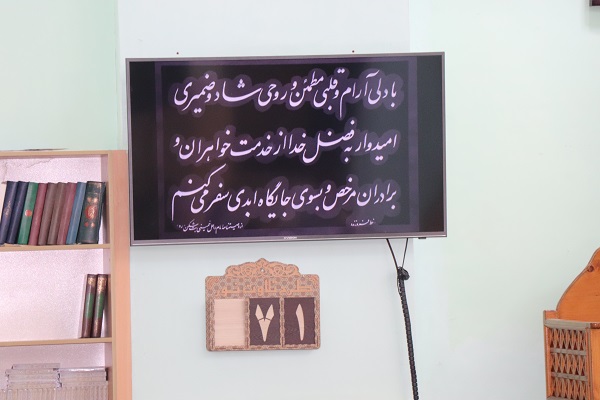 با دلی آرام و قلبی مطمئن و روحی شاد و ضمیری
امیدوار به فضل خدا از خدمت خواهران و
برادران مرخص و بسوی جایگاه ابدی سفر می کنم
۷ ۱